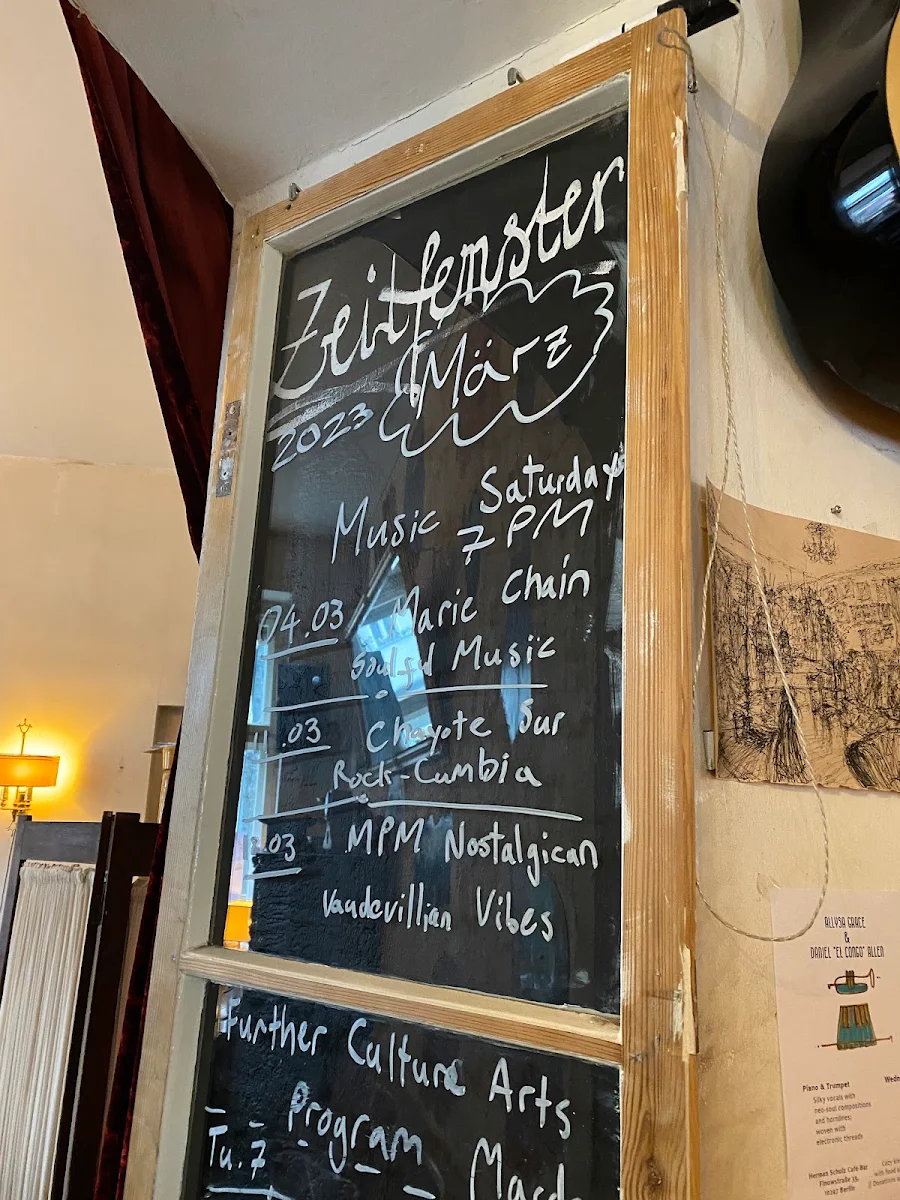 Zeitfenster
März
2023
Saturday
Music 7 PM
04.03 Marie Chain
Soulful Music
11.03 Chayote Sur
Rock-Cumbia
.03 MPM Nostalgican
Vaudevillian Vibes
Further Culture Arts
Program
Tu. 7
ALLYSA GRACE
&
DANIEL "EL CONGO" ALLEN
Piano & Trumpet
Silky vocals with
neo-soul compositions
and hornlines;
woven with
electronic threads
Herman Schulz Café-Bar
Finowstraße 33,
10247 Berlin